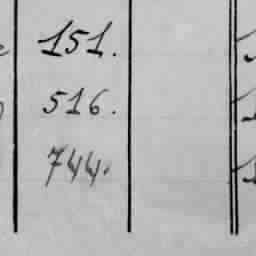 151.
516.
744.